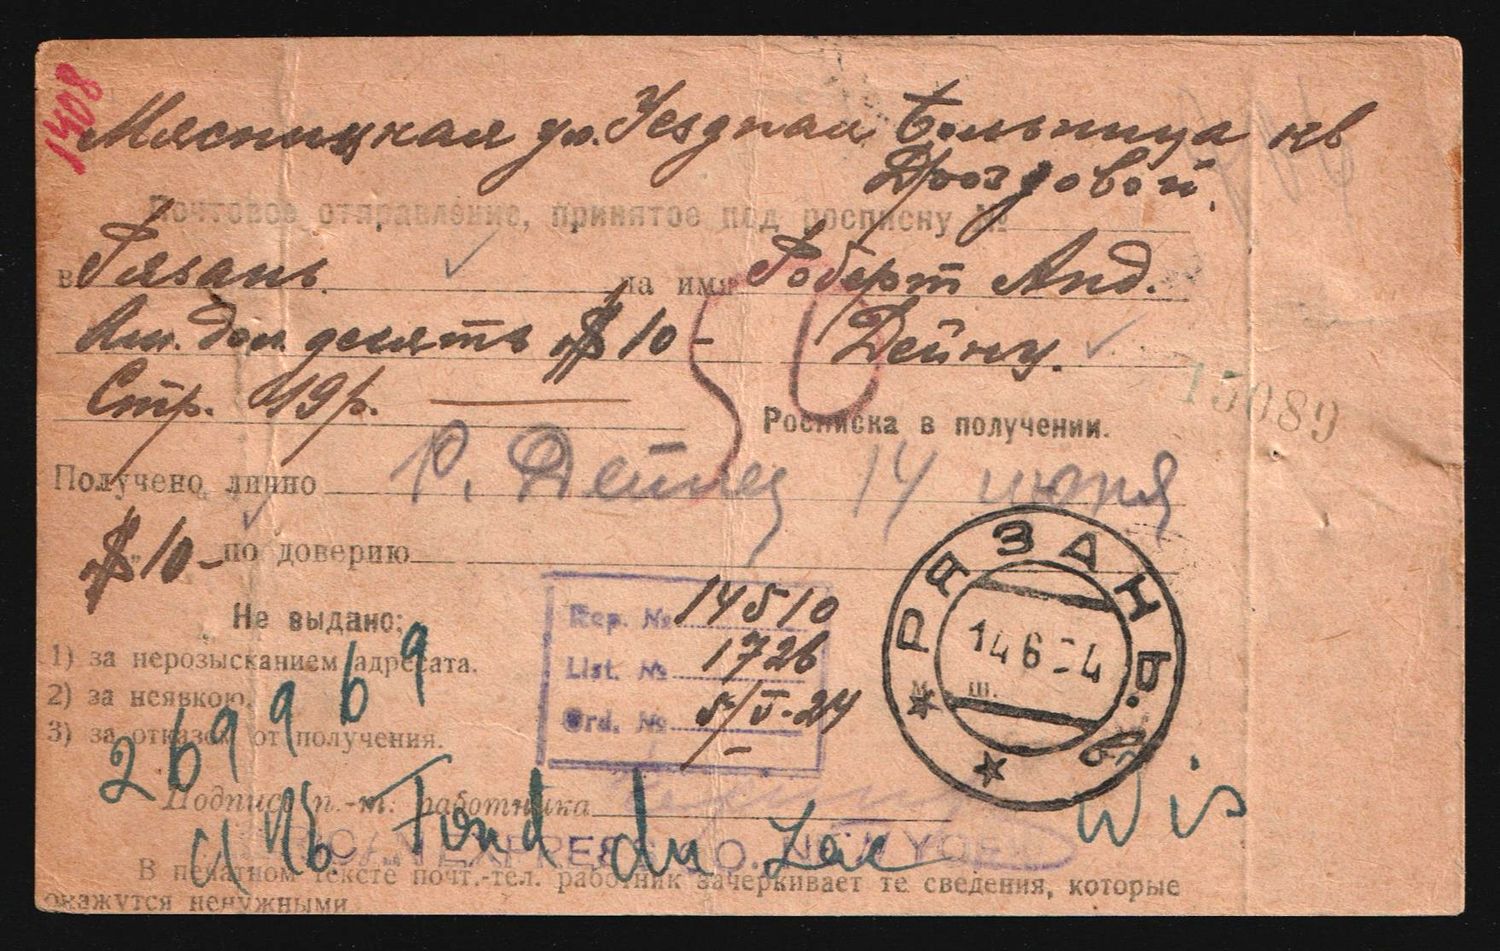 1408
Мясницкая ул. Уездная Больница кв
Дроздовой.
Почтовое отправление, принятое под росписку №
в Рязань. на имя Роберт Анд.
Ам. дол. десять $ 10 - Дейну.
50
Стр. 19р.
15089
Росписка в получении.
Получено лично Р. Дейнец 14 июня
$ 10 - по доверию
РЯЗАНЬ. б
14 6 24
м. ш.
Не выдано:
1) за нерозысканием адресата.
2) за неявкою.
3) за отказом от получения.
Rep. № 14510
List. № 1726
Ord. № 5/V-24
269969
Подпись п.-т. работника
Fond du Lac Wis
EXPRESS CO. NEW YORK
В печатном тексте почт.-тел. работник зачеркивает те сведения, которые
окажутся ненужными